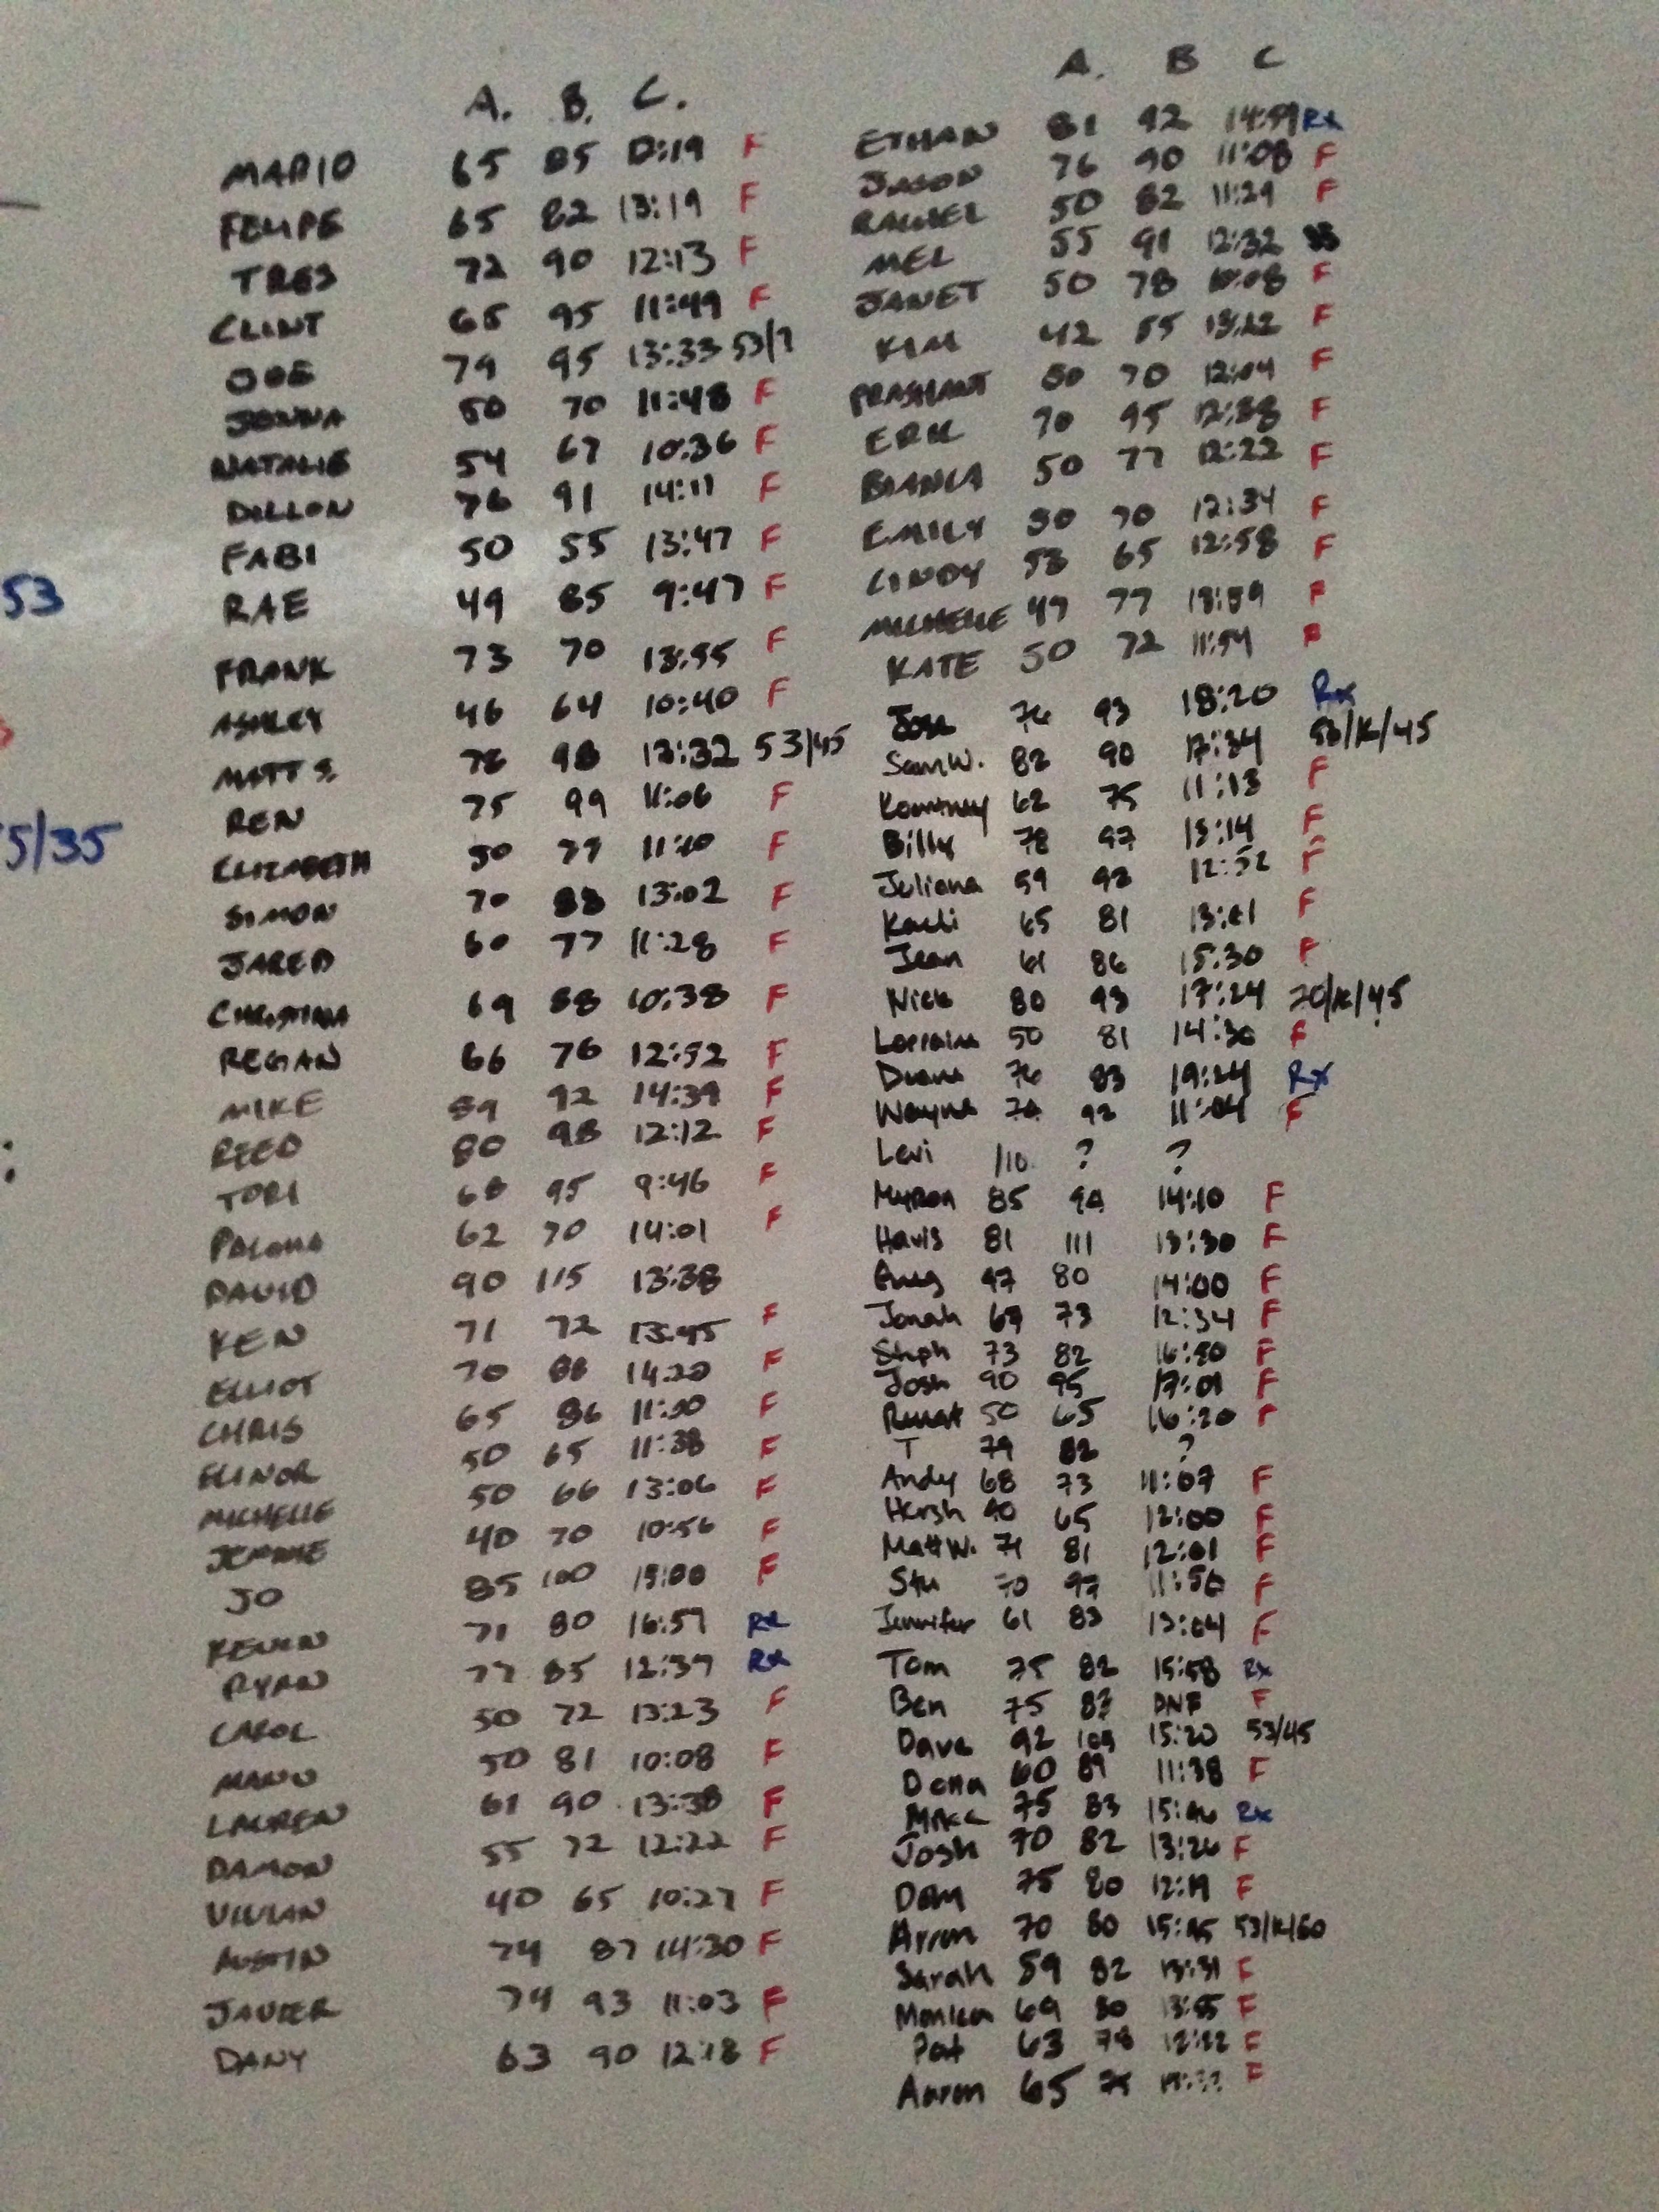 A. B. C.
MARIO 65 85 F
FELIPE 65 82 13:19 F
TRES 72 90 12:13 F
CLINT 65 95 11:49 F
JOE 79 95 13:33 53/?
JENNA 50 70 11:48 F
NATALIE 54 67 10:36 F
DILLON 76 91 14:11 F
FABI 50 55 13:47 F
RAE 49 85 9:47 F
FRANK 73 70 13:55 F
ASHLEY 46 64 10:40 F
MATT S. 78 98 13:32 53/45
REN 75 99 11:06 F
ELIZABETH 50 77 F
SIMON 70 88 13:02 F
JARED 60 77 11:28 F
CHRISTINA 69 88 10:38 F
REGAN 66 76 12:52 F
MIKE 89 92 14:39 F
REED 80 98 12:12 F
TORI 68 95 9:46 F
PALOMA 62 70 14:01 F
DAVID 90 115 13:38
KEN 71 72 13:45 F
ELLIOT 70 88 14:20 F
CHRIS 65 86 F
ELINOR 50 65 11:38 F
MICHELLE 50 66 13:06 F
JENNIE 40 70 10:56 F
JO 85 100 15:00 F
KEVIN 71 80 16:57 Rx
RYAN 77 85 12:37 Rx
CAROL 50 72 13:23 F
MANO 50 81 10:08 F
LAUREN 61 90 13:38 F
DAMON 55 72 12:22 F
VIVIAN 40 65 10:27 F
AUSTIN 74 87 14:30 F
JAVIER 74 93 11:03 F
DANY 63 90 12:18 F
A. B C
ETHAN 81 92 14:59 Rx
JASON 76 90 11:08 F
RAQUEL 50 82 11:29 F
MEL 55 91 12:32
JANET 50 78 F
KIM 42 55 13:22 F
PRASHANT 50 70 12:04 F
ERIC 70 95 12:38 F
BIANCA 50 77 12:22 F
EMILY 50 70 12:34 F
CINDY 53 65 12:58 F
MICHELLE 47 77 13:59 F
KATE 50 72 11:54 F
Jose 76 93 18:20 Rx
Sam W. 82 90 17:34 53/K/45
Kourtney 62 75 11:13 F
Billy 78 97 13:14 F
Juliana 59 92 12:52 F
Kaeli 65 81 F
Jean 61 86 15:30 F
Nick 80 93 17:24 70/K/45
Lorraine 50 81 14:30 F
76 83 19:24 Rx
Wayne 92 11:04 F
Levi 110 ? ?
Myron 85 14:10 F
Havis 81 111 13:30 F
80 14:00 F
Jonah 73 12:34 F
Steph 73 82 F
Josh 90 95 17:01 F
50 65 16:20 F
T 79 82 ?
Andy 68 73 11:07 F
Harsh 65 12:00 F
Matt W. 71 81 12:01 F
Stu 70 97 11:56 F
Jennifer 61 83 13:04 F
Tom 75 82 15:58 Rx
Ben 75 DNF F
Dave 92 15:20 53/45
Dena 60 89 11:38 F
75 83 Rx
Josh 70 82 13:26 F
Dom 75 80 12:19 F
Arron 70 80 15:45 53/K/60
Sarah 59 82 13:31 F
Monica 69 80 13:55 F
Pat 63 78 12:22 F
Aaron 65 75 F
53
5/35
: